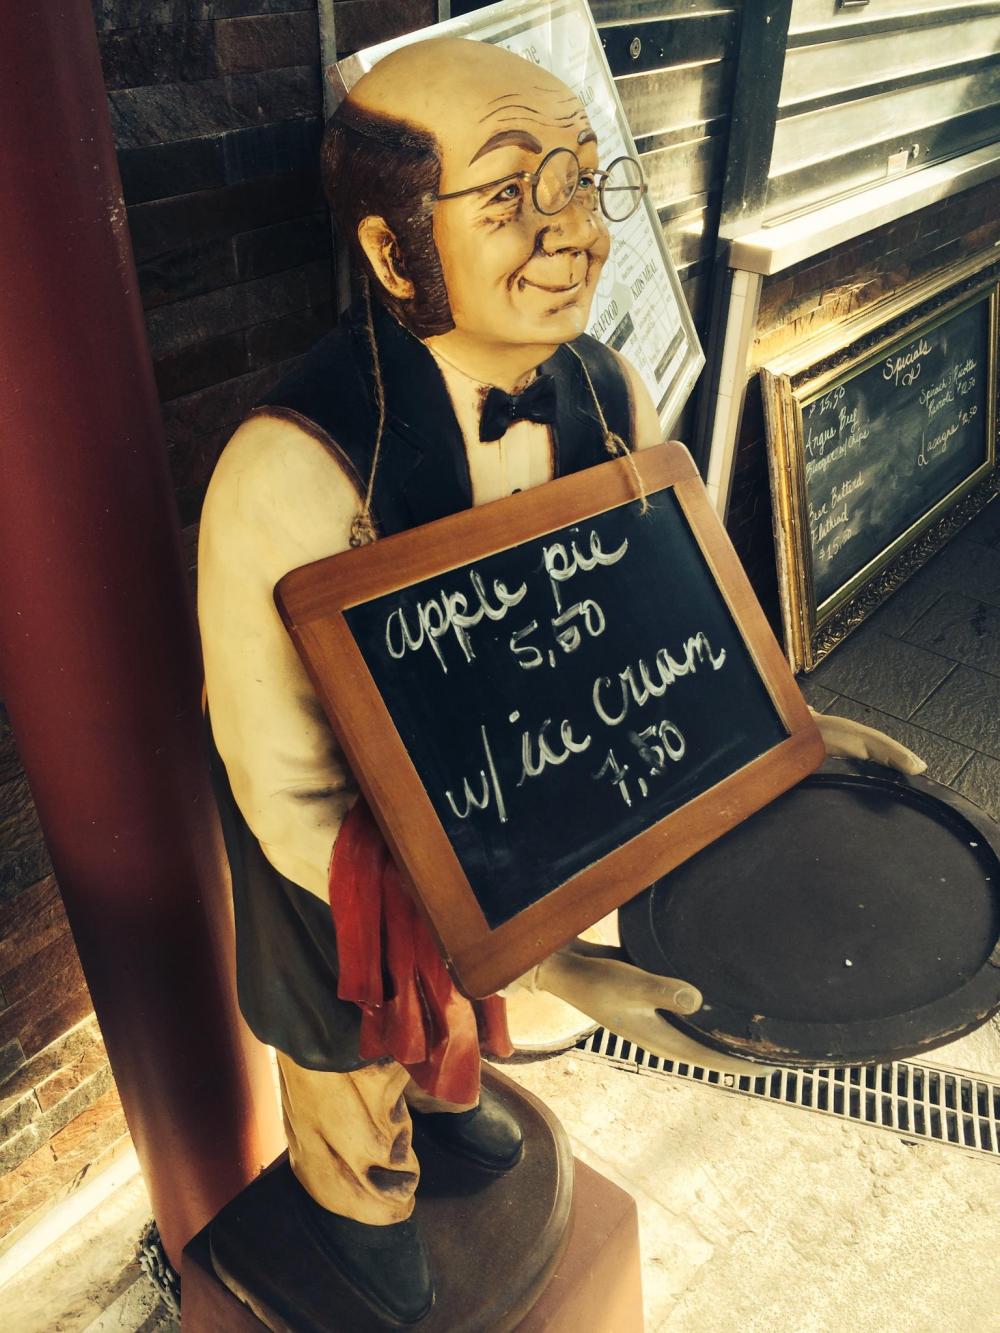 apple pie
5,50
w/ ice cream
7,50
Specials
$ 15,50
Angus Beef
Burger w/ Chips
Beer Battered
Flathead
$15,50
Spinach & Ricotta
Ravioli
Lasagna
SEAFOOD
KIDS MEAL